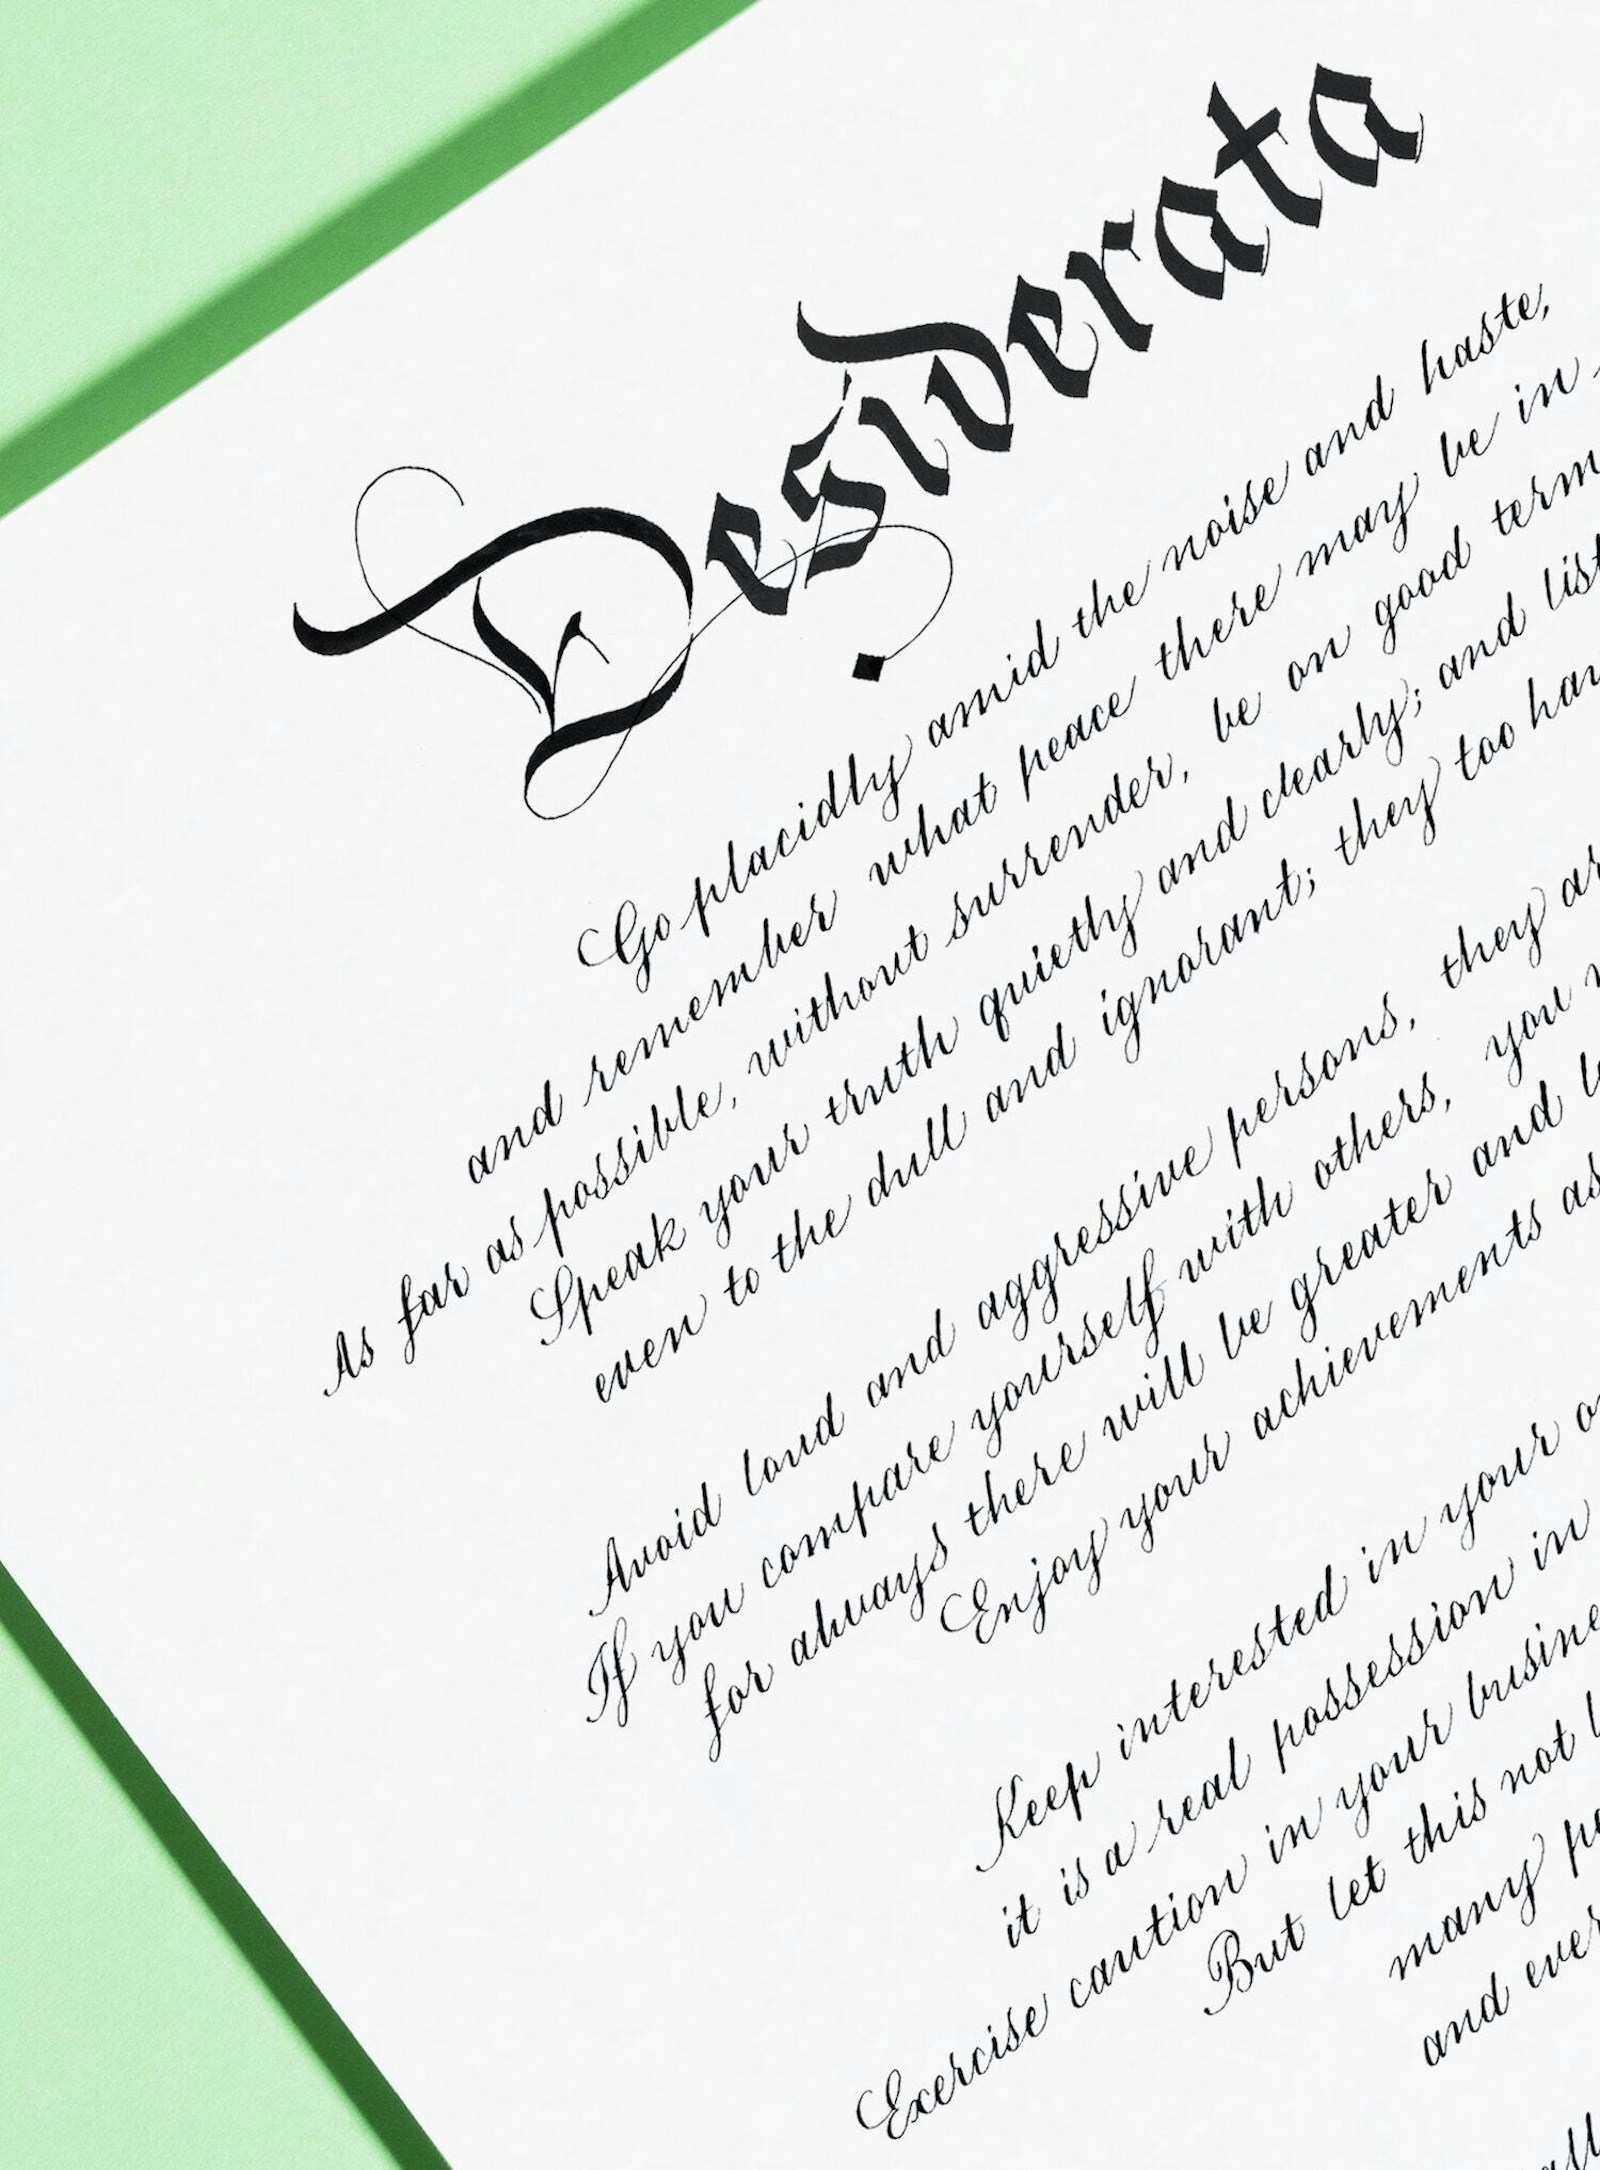 Desiderata
Go placidly amid the noise and haste,
and remember what peace there may be in
As far as possible, without surrender, be on good term
Speak your truth quietly and clearly; and list
even to the dull and ignorant; they too hav
Avoid loud and aggressive persons, they ar
If you compare yourself with others, you
for always there will be greater and
Enjoy your achievements as
Keep interested in your o
it is a real possession in
Exercise caution in your busine
But let this not
many p
and ever